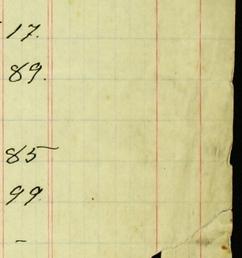 17.
89.
85
99
-